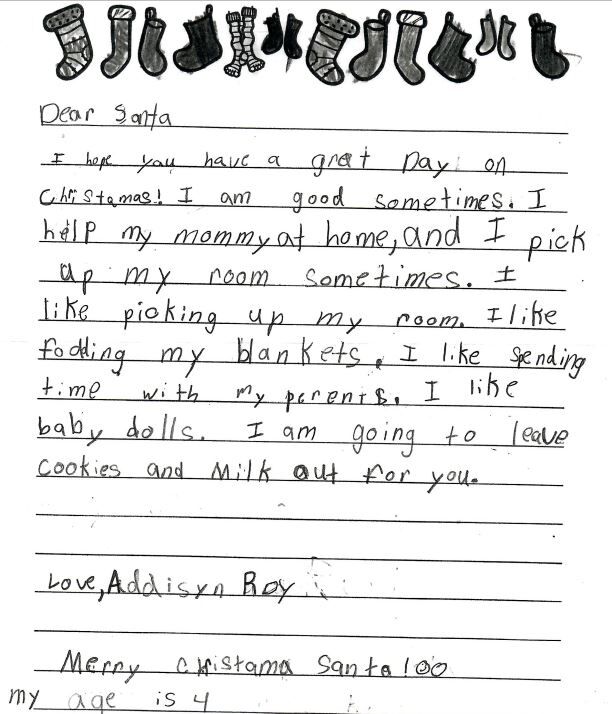 Dear Santa
I hope you have a great Day on
Christamas! I am good sometimes. I
help my mommy at home, and I pick
up my room sometimes. I
like picking up my room. I like
fodding my blankets. I like spending
time with my parents. I like
baby dolls. I am going to leave
cookies and Milk out for you.
Love, Addisyn Roy
Merry christama Santa!oo
my age is 4